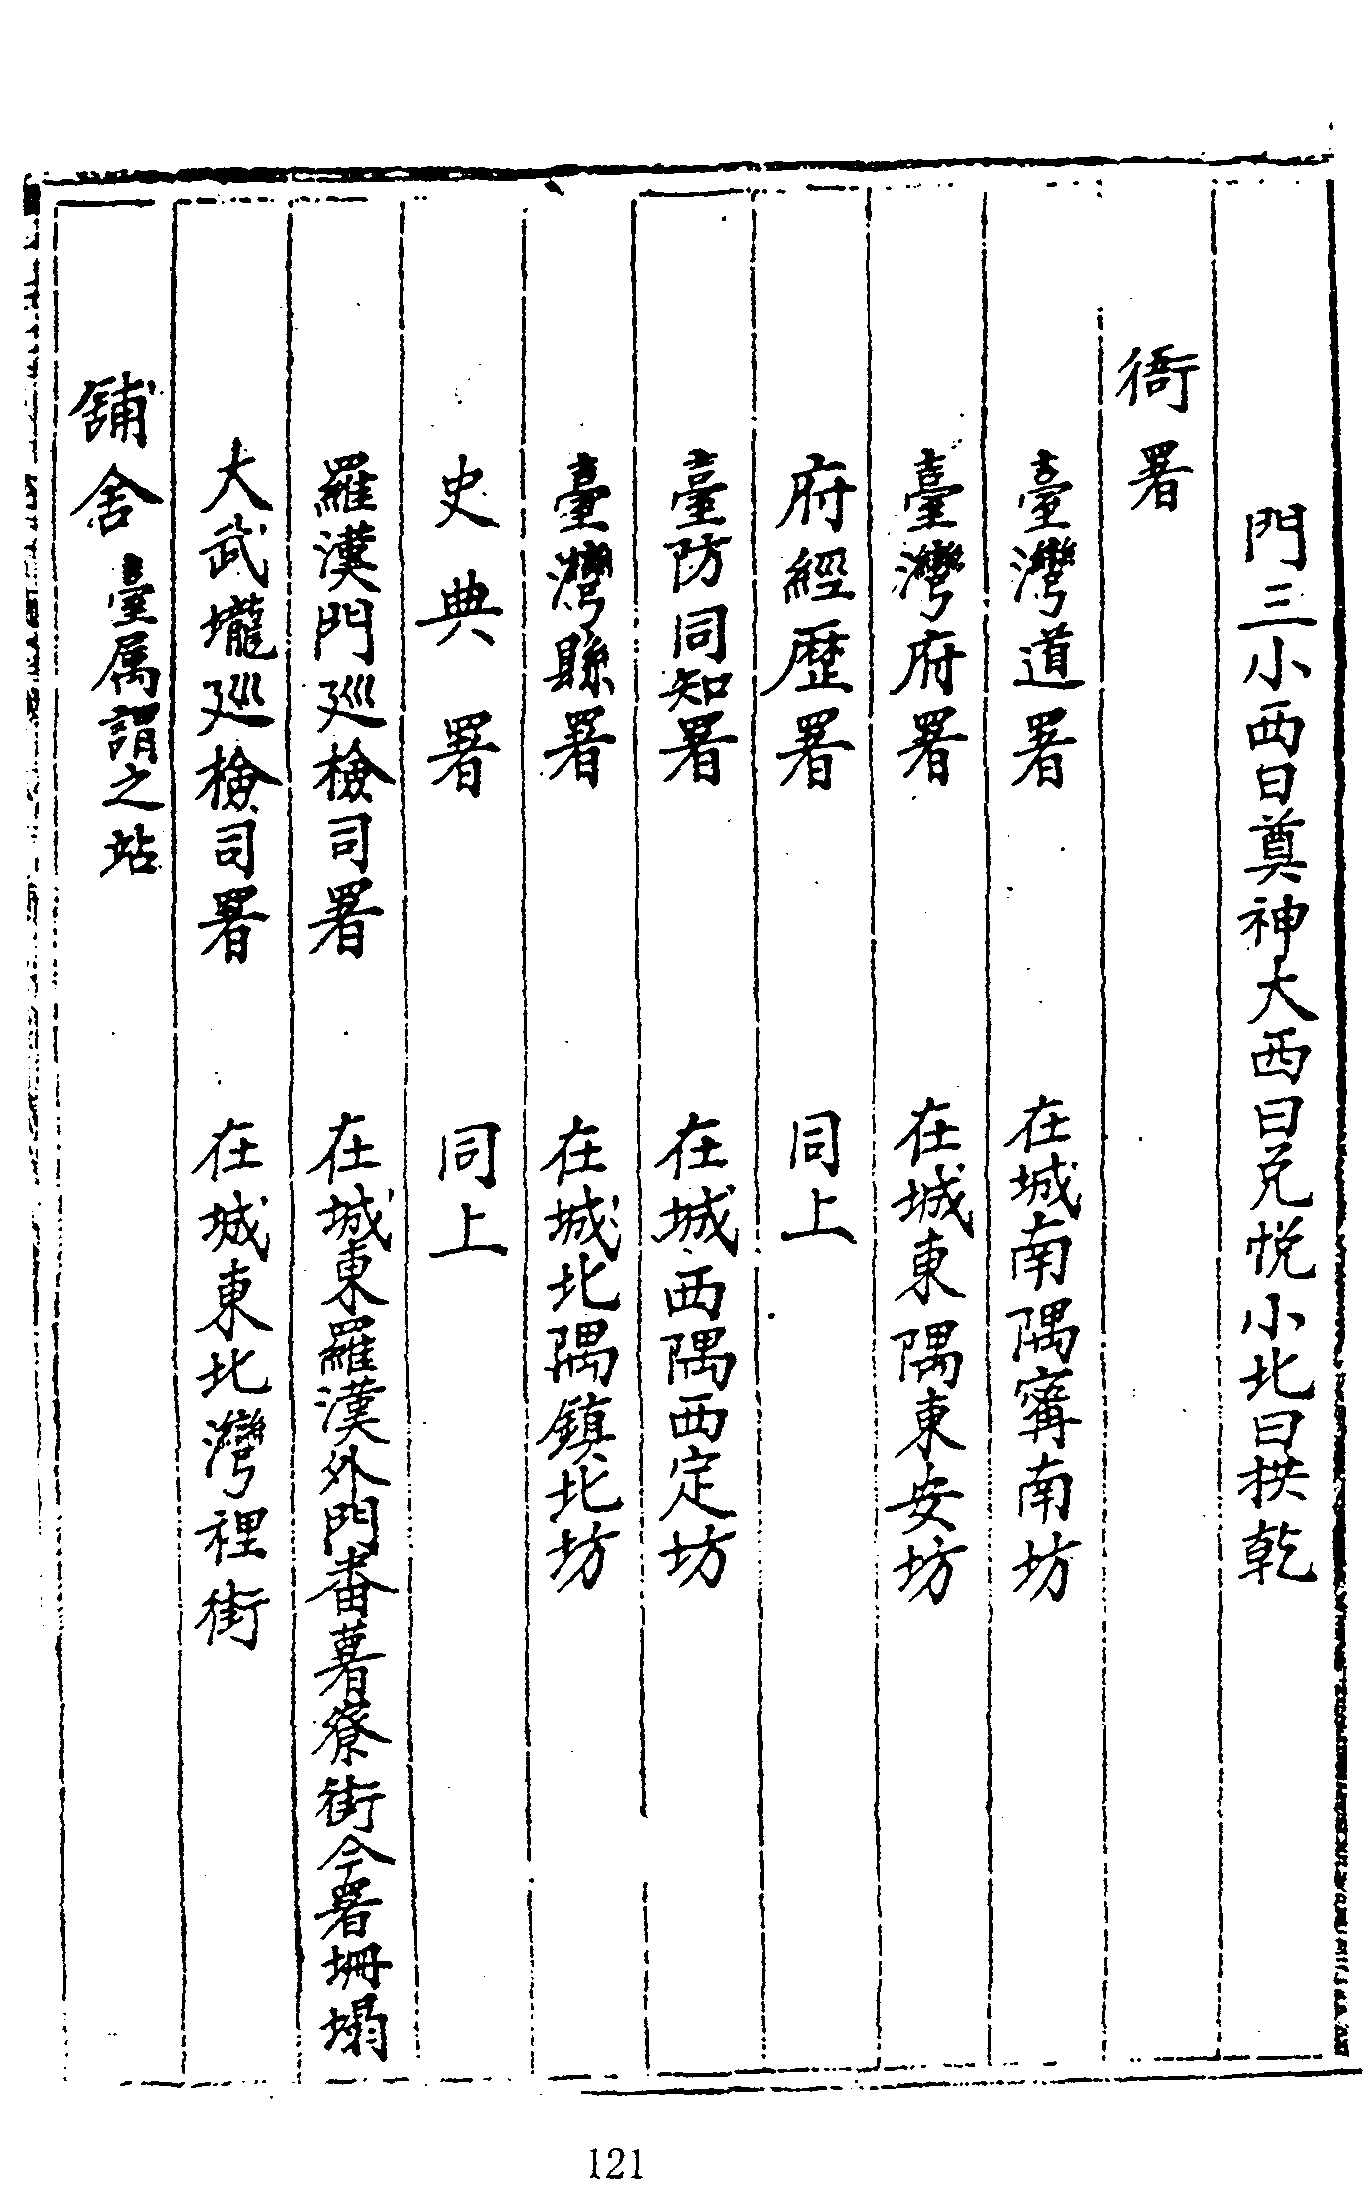 門三小西曰奠神大西曰兌悅小北曰拱乾
衙署
臺灣道署 在城南隅寗南坊
臺灣府署 在城東隅東安坊
府經歷署 同上
臺防同知署 在城西隅西定坊
臺灣縣署 在城北隅鎮北坊
史典署 同上
羅漢門廵檢司署 在城東羅漢外門番薯寮街今署坍塌
大武壠廵檢司署 在城東北灣裡街
舖舍 臺属謂之站
121